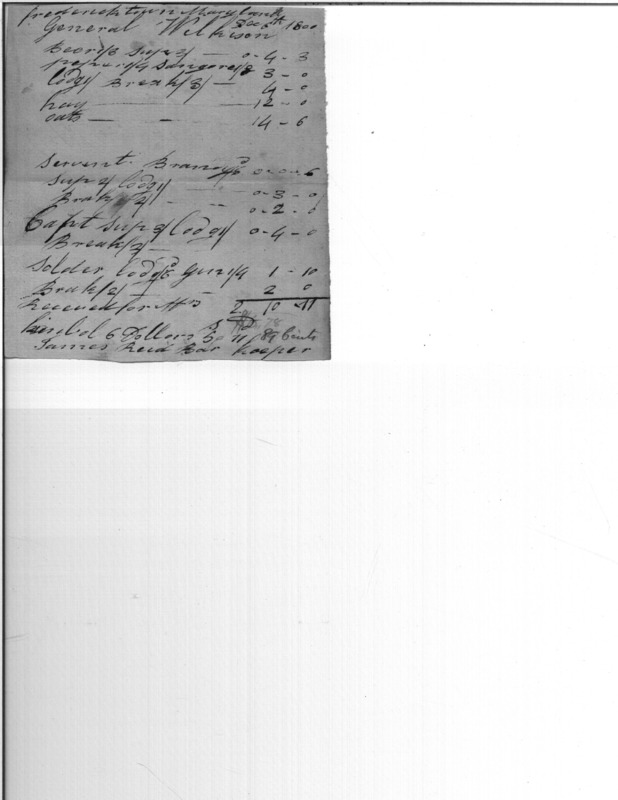 fredericktown Maryland
Dec 8th 1800
General Wilkison
Beor/3 Sup 3/ — 0 - 4 - 3
Sangore/8 3 - 0
lodg/ Break/3/ — 4 - 0
hay — 12 - 0
oats — — 14 - 6
Servent. Brandy/6 0 - 0 - 6
Sup 2/ lodg1/ — 0 - 3 - 0
Brak/2/ - - 0 - 2 - 0
Capt Sup 3/ lodg1/ 0 - 4 - 0
Break/3/ —
Solder lodg/6 Gin/4 1 - 10
Brak/2/ - 2 0
Received for Mrs 2 10 11
Kimbol 6 Dollars 89 Cents
James Reid Bar Keeper